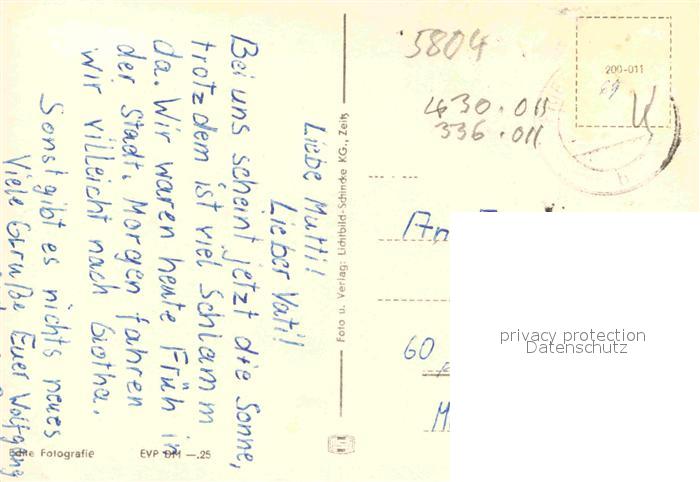 Liebe Mutti!
Lieber Vati!
Bei uns scheint jetzt die Sonne,
trotzdem ist viel Schlamm
da. Wir waren heute Früh in
der Stadt. Morgen fahren
wir villeicht nach Gotha.
Sonst gibt es nichts neues
Viele Grüße Euer Wolfgang
Echte Fotografie
EVP DM —.25
Foto u. Verlag: Lichtbild-Schincke KG., Zeitz
5804
430.011
336.011
200-011
An
60
privacy protection
Datenschutz